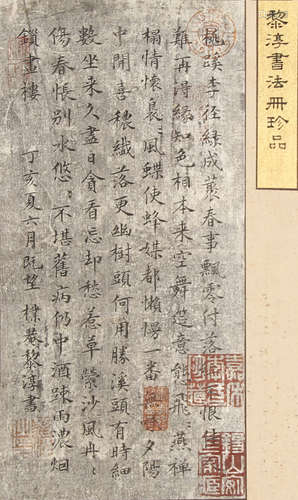 黎淳書法冊珍品
桃蹊李徑綠成叢春事飄零付落恨佳
難再得緣知色相本来空舞筵意態飛〻燕禪
榻情懷裊〻風蝶使蜂媒都懶慢一番夕陽
中開喜穠纖落更幽樹頭何用勝溪頭有時細
數坐来久盡日貪看忘却愁惹草縈沙風冉〻
傷春悵別水悠〻不堪舊病仍中酒疎雨濃烟
鎖畫樓　丁亥夏六月既望　樸菴黎淳書